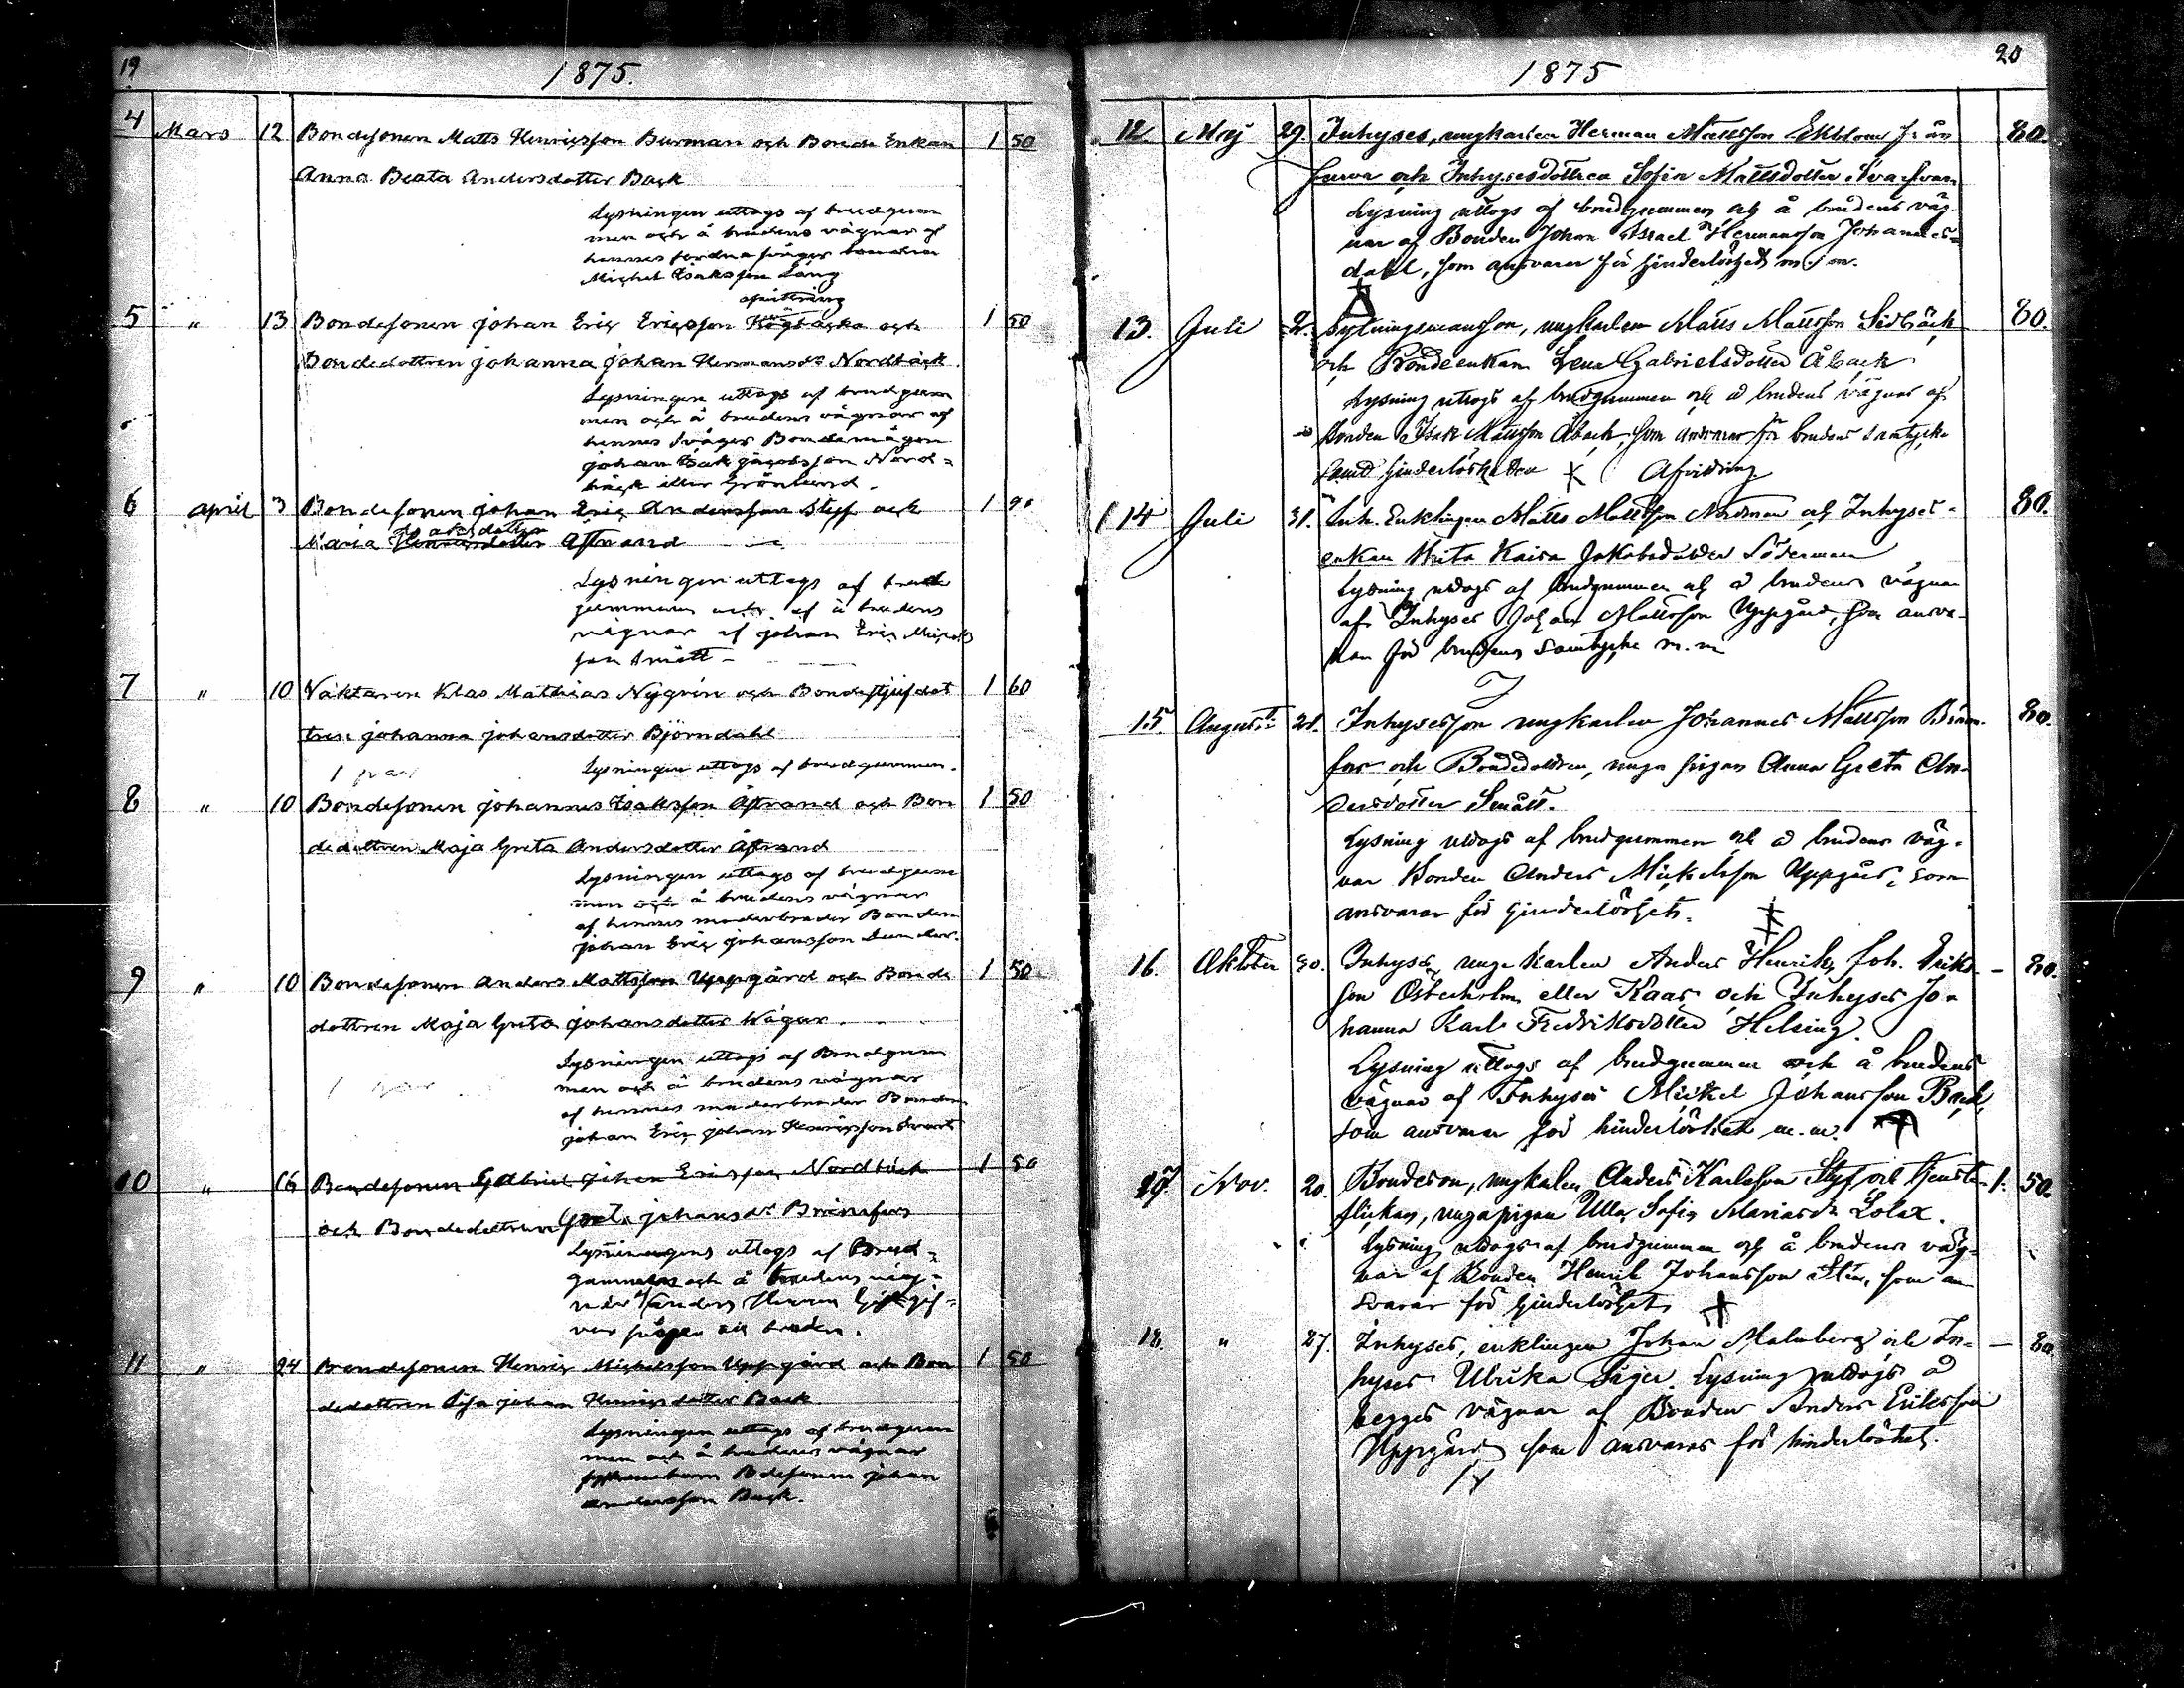 19
1875.
4 Mars 12 Bondesonen Matts Henricsson Burman och Bonde Enkan 1 50
Anna Beata Andersdotter Back
Lysningen uttogs af brudgum
men och å brudens vägnar af
hennes fordna svåger bonden
Michel Isaksson Lång
5 " 13 Bondesonen Johan Eric Ericsson och 1 50
Bondedottren Johanna Johan Hermansdr Nordbäck
Lysningen uttogs af brudgum
men och å brudens vägnar af
hennes svåger Bondemågen
Johan Isak Jacobsson Nord=
bäck eller Grönlund.
6 April 3 Bondesonen Johan Eric Andersson Styf och 1
Maria Åstrand
Lysningen uttogs af brud
gummen och af å brudens
vägnar af Johan Eric Michels
son Smått
7 " 10 Väktaren Klas Mathias Nygrén och Bondestjufdot 1 60
tren Johanna Johansdotter Björndahl
1 par Lysningen uttogs af brudgummen.
8 " 10 Bondesonen Johannes Isaksson Åstrand och Bon 1 50
dedottren Maja Greta Andersdotter Åstrand
Lysningen uttogs af brudgum
men och å brudens vägnar
af hennes moderbroder Bonden
Johan Eric Johansson
9 " 10 Bondesonen Anders Mattsson Uppgård och Bonde 1 50
dottren Maja Greta Johansdotter Wägar.
Lysningen uttogs af Brudgum
men och å brudens vägnar
af hennes moderbroder Bonden
Johan Eric Johan Henricsson Svart
10 " 16 Bondesonen Gabriel Johan Ericsson Nordbäck 1 50
och Bondedottren Greta Johansdr Brännfors
Lysningens uttogs af Brud=
gummen och å brudens väg=
nar Anders Herman
var svåger till bruden.
11 " 24 Bondesonen Henric Michelsson Uppgård och Bon 1 50
dedottren Lisa Johan Henricsdotter Back
Lysningen uttogs af brudgum
men och å brudens vägnar
Bdesonen Johan
Andersson Back.
1875
20
12. Maj 29. Inhyses, ungkarlen Herman Mattsson Ekblom från 80.
och Inhysesdottren Sofia Mattsdotter
Lysning uttogs af brudgummen och å brudens väg
nar af Bonden Johan Israel Hermansson Johannes=
dahl, som ansvarar för hinderlöshet m. m.
13. Juli 2. Sytningsmansson, ungkarlen Matts Mattsson Sidbäck 80.
och Bondeenkan Lena Gabrielsdotter Åback
Lysning uttogs af brudgummen och å brudens vägnar af
Bonden Isak Mattsson Åback, som ansvarar för brudens samtycke
samt hinderlösheten Afvittring
14 Juli 31. Inh. Enklingen Matts Mattsson Nordman och Inhyses- 80.
enkan Brita Kaisa Jakobsdotter Söderman
Lysning uttogs af brudgummen och å brudens vägnar
af Inhyses Johan Mattsson Uppgård, som ansva-
rar för brudens samtycke m. m
15. Augusti 21. Inhysesson ungkarlen Johannes Mattsson Bränn- 80.
fors och Bondedottren, unga pigan Anna Greta An-
dersdotter Smått.
Lysning uttogs af brudgummen och å brudens väg-
nar Bonden Anders Mickelsson Uppgård, som
ansvarar för hinderlöshet.
16. Oktober 30. Inhyses, unge karlen Anders Henrik Joh. Eriks- — 80.
son Österholm eller Kaas och Inhyses Jo-
hanna Karl Fredriksdotter Helsing.
Lysning uttogs af brudgummen och å brudens
vägnar af Inhyses Mickel Johansson Back,
som ansvarar för hinderlöshet m. m.
17. Nov. 20. Bondeson, ungkarlen Anders Karlsson Styf och tjenste- 1. 50.
flickan, unga pigan Ulla Sofia Mariasdr Lolax.
Lysning uttogs af brudgummen och å brudens väg-
nar af Bonden Henrik Johansson Sten, som an
svarar för hinderlöshet
18. " 27. Inhyses, enklingen Johan Malmberg och In- — 80.
hyses Ulrika Siger. Lysning uttogs å
begges vägnar af Bonden Anders Eriksson
Uppgård som ansvarar för hinderlöshet.